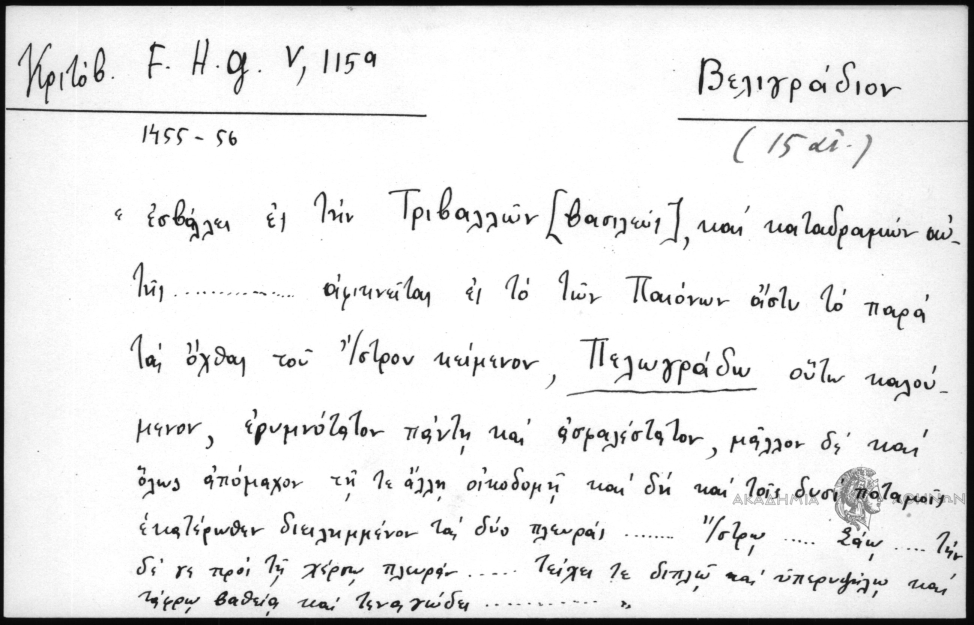 Κριτόβ. F. H. g. V, 115a
Βελιγράδιον
1455 - 56
(15 αἰ.)
« ἐσβάλλει ἐς τὴν Τριβαλλῶν [βασιλεύς], καὶ καταδραμὼν αὐ-
τῆς .............. ἀφικνεῖται ἐς τὸ τῶν Παιόνων ἄστυ τὸ παρὰ
τὰς ὄχθας τοῦ Ἴστρου κείμενον, Πελωγράδω οὕτω καλού-
μενον, ἐρυμνότατον πάντῃ καὶ ἀσφαλέστατον, μᾶλλον δὲ καὶ
ὅλως ἀπόμαχον τῇ τε ἄλλῃ οἰκοδομῇ καὶ δὴ καὶ τοῖς δυσὶ ποταμοῖς
ΑΚΑΔΗΜΙΑ ΑΘΗΝΩΝ
ἑκατέρωθεν διειλημμένον τὰς δύο πλευράς ........ Ἴστρῳ ..... Σάῳ .... τὴν
δέ γε πρὸς τῇ χέρσῳ πλευρὰν ..... τείχει τε διπλῷ καὶ ὑπερυψήλῳ καὶ
τάφρῳ βαθείᾳ καὶ τεναγώδει ............ »